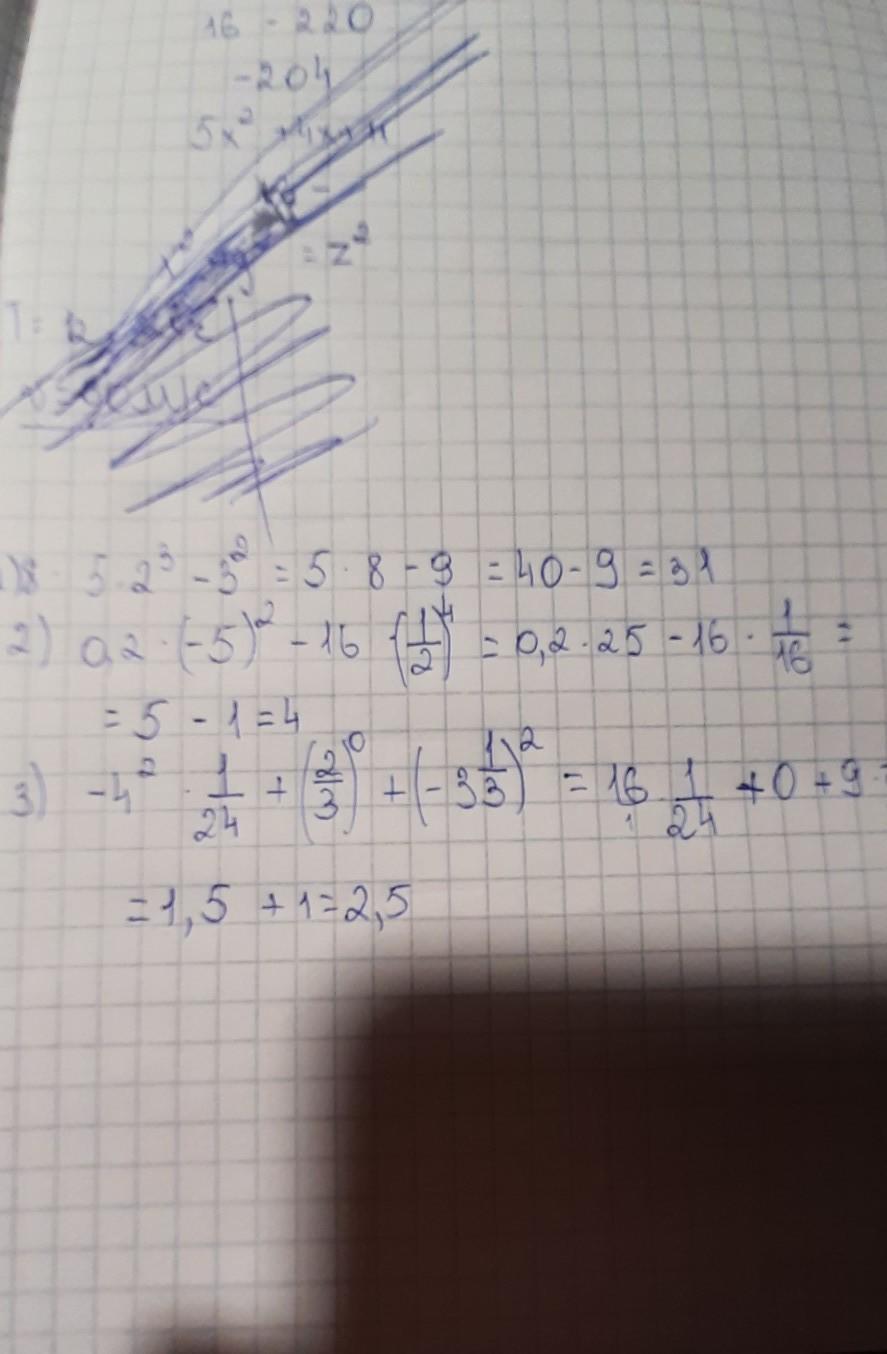 16 - 220
-204
5x² + 4x + 11
= z²
5·2³ - 3² = 5·8 - 9 = 40 - 9 = 31
2) 0,2·(-5)² - 16·(1/2)⁴ = 0,2·25 - 16·1/16 =
= 5 - 1 = 4
3) -4²·1/24 + (2/3)⁰ + (-3 1/3)² = 16·1/24 + 0 + 9
= 1,5 + 1 = 2,5